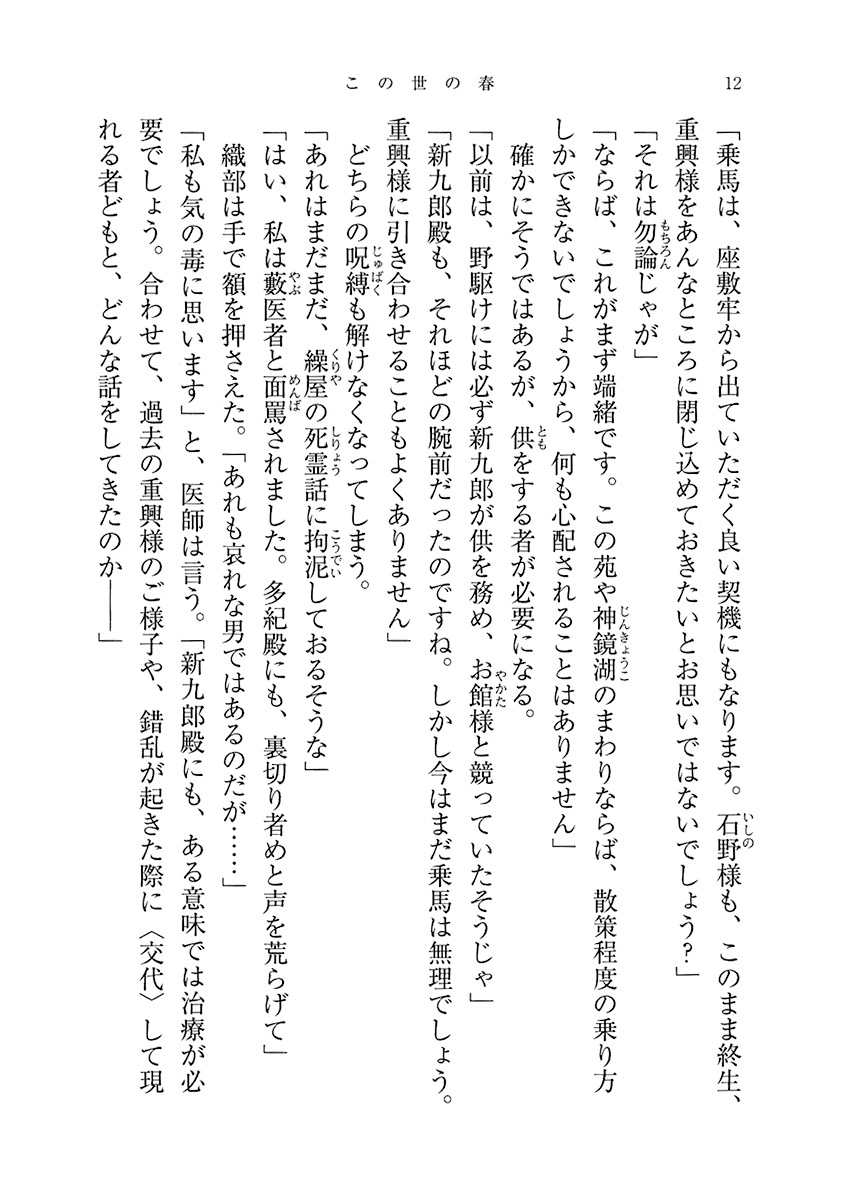 この世の春
12
「乗馬は、座敷牢から出ていただく良い契機にもなります。石野様も、このまま終生、
重興様をあんなところに閉じ込めておきたいとお思いではないでしょう？」
「それは勿論じゃが」
「ならば、これがまず端緒です。この苑や神鏡湖のまわりならば、散策程度の乗り方
しかできないでしょうから、何も心配されることはありません」
確かにそうではあるが、供をする者が必要になる。
「以前は、野駆けには必ず新九郎が供を務め、お館様と競っていたそうじゃ」
「新九郎殿も、それほどの腕前だったのですね。しかし今はまだ乗馬は無理でしょう。
重興様に引き合わせることもよくありません」
どちらの呪縛も解けなくなってしまう。
「あれはまだまだ、繰屋の死霊話に拘泥しておるそうな」
「はい、私は藪医者と面罵されました。多紀殿にも、裏切り者めと声を荒らげて」
織部は手で額を押さえた。「あれも哀れな男ではあるのだが……」
「私も気の毒に思います」と、医師は言う。「新九郎殿にも、ある意味では治療が必
要でしょう。合わせて、過去の重興様のご様子や、錯乱が起きた際に〈交代〉して現
れる者どもと、どんな話をしてきたのか――」
いしの
もちろん
じんきょうこ
とも
やかた
じゅばく
くりや
しりょう
こうでい
やぶ
めんば